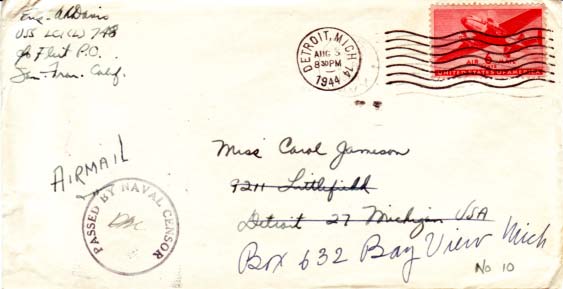 Ens. A R Davis
USS LCI (L) 748
c/o Fleet P.O.
San. Fran. Calif.
DETROIT, MICH. 14
AUG 5
8 30 PM
1944
AIR MAIL
6¢
UNITED STATES OF AMERICA
AIRMAIL
PASSED BY NAVAL CENSOR
Miss Carol Jamieson
9211 Littlefield
Detroit 27 Michigan USA
Box 632 Bay View Mich
No 10